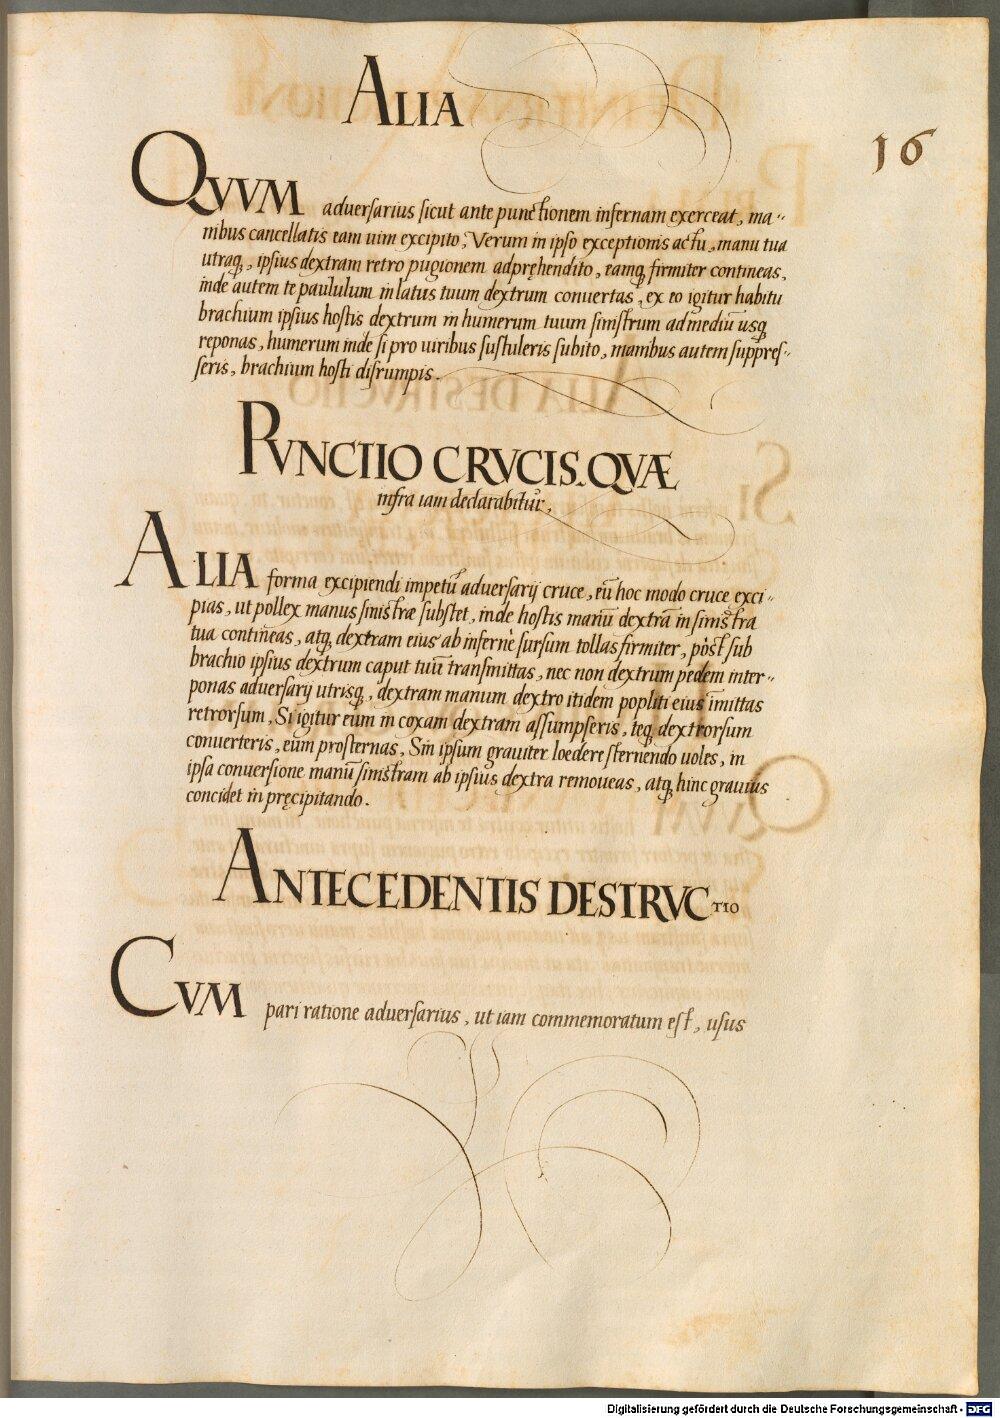 ALIA
16
QVVM adversarius sicut ante punctionem infernam exerceat, ma-
nibus cancellatis eam uim excipito, Verum in ipso exceptionis actu, manu tua
utraq, ipsius dextram retro pugionem adpręhendito, eamq firmiter contineas,
inde autem te paululum in latus tuum dextrum conuertas, ex eo igitur habitu
brachium ipsius hostis dextrum in humerum tuum sinistrum ad mediū usq
reponas, humerum inde si pro uiribus sustuleris subito, manibus autem suppres-
seris, brachium hosti disrumpis.
PVNCTIO CRVCIS. QVÆ
infra iam declarabitur,
ALIA forma excipiendi impetū adversarij cruce, eū hoc modo cruce exci-
pias, ut pollex manus sinistræ substet, inde hostis manū dextrā in sinistra
tua contineas, atq dextram eius ab infernè sursum tollas firmiter, pòst sub
brachio ipsius dextrum caput tuū transmittas, nec non dextrum pedem inter-
ponas adversarij utrisq, dextram manum dextro itidem popliti eius īmittas
retrorsum, Si igitur eum in coxam dextram assumpseris, teq dextrorsum
conuerteris, eum prosternas, Sin ipsum grauiter loedere sternendo uoles, in
ipsa conuersione manū sinistram ab ipsius dextra remoueas, atq hinc grauius
concidet in pręcipitando.
ANTECEDENTIS DESTRVCTIO
CVM pari ratione adversarius, ut iam commemoratum est, usus
Digitalisierung gefördert durch die Deutsche Forschungsgemeinschaft - DFG